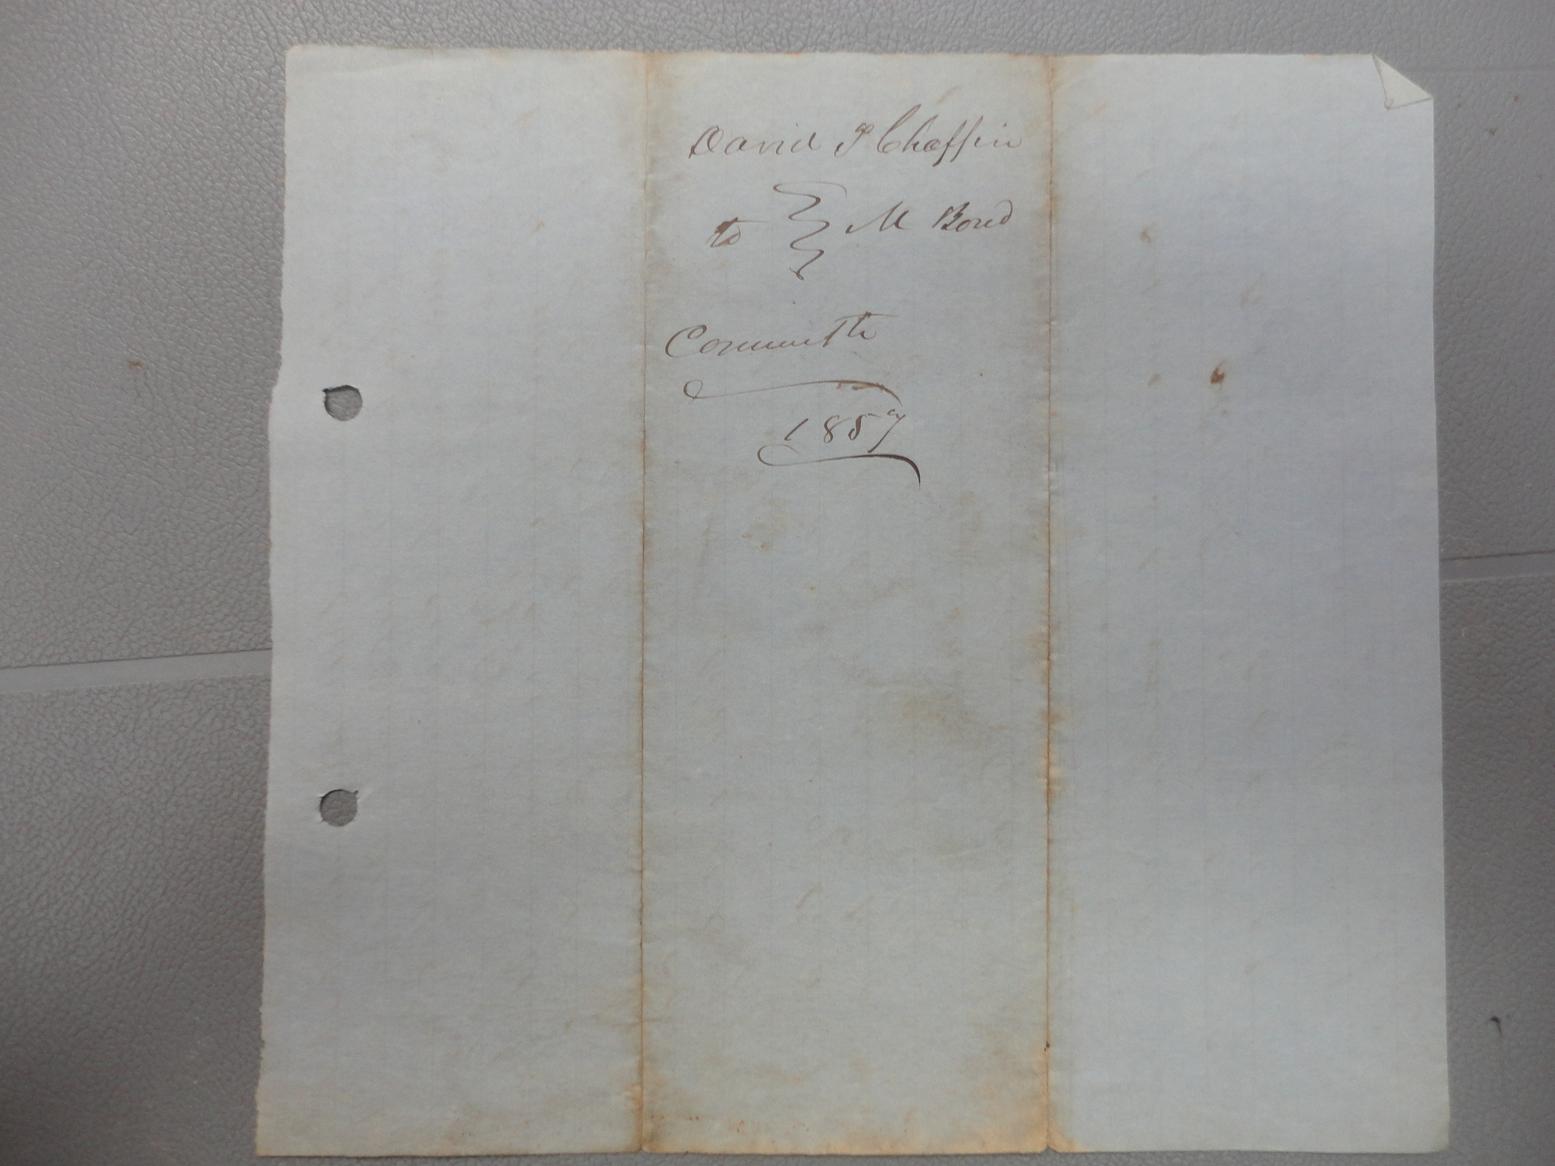 David P Chaffin
to M Bond
Committe
1857